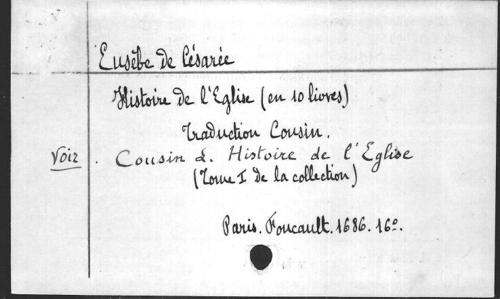 Eusèbe de Césarée
Histoire de l'Eglise (en 10 livres)
Traduction Cousin.
Voir. Cousin L. Histoire de l'Eglise
(Tome I de la collection)
Paris. Foucault. 1686. 16o.